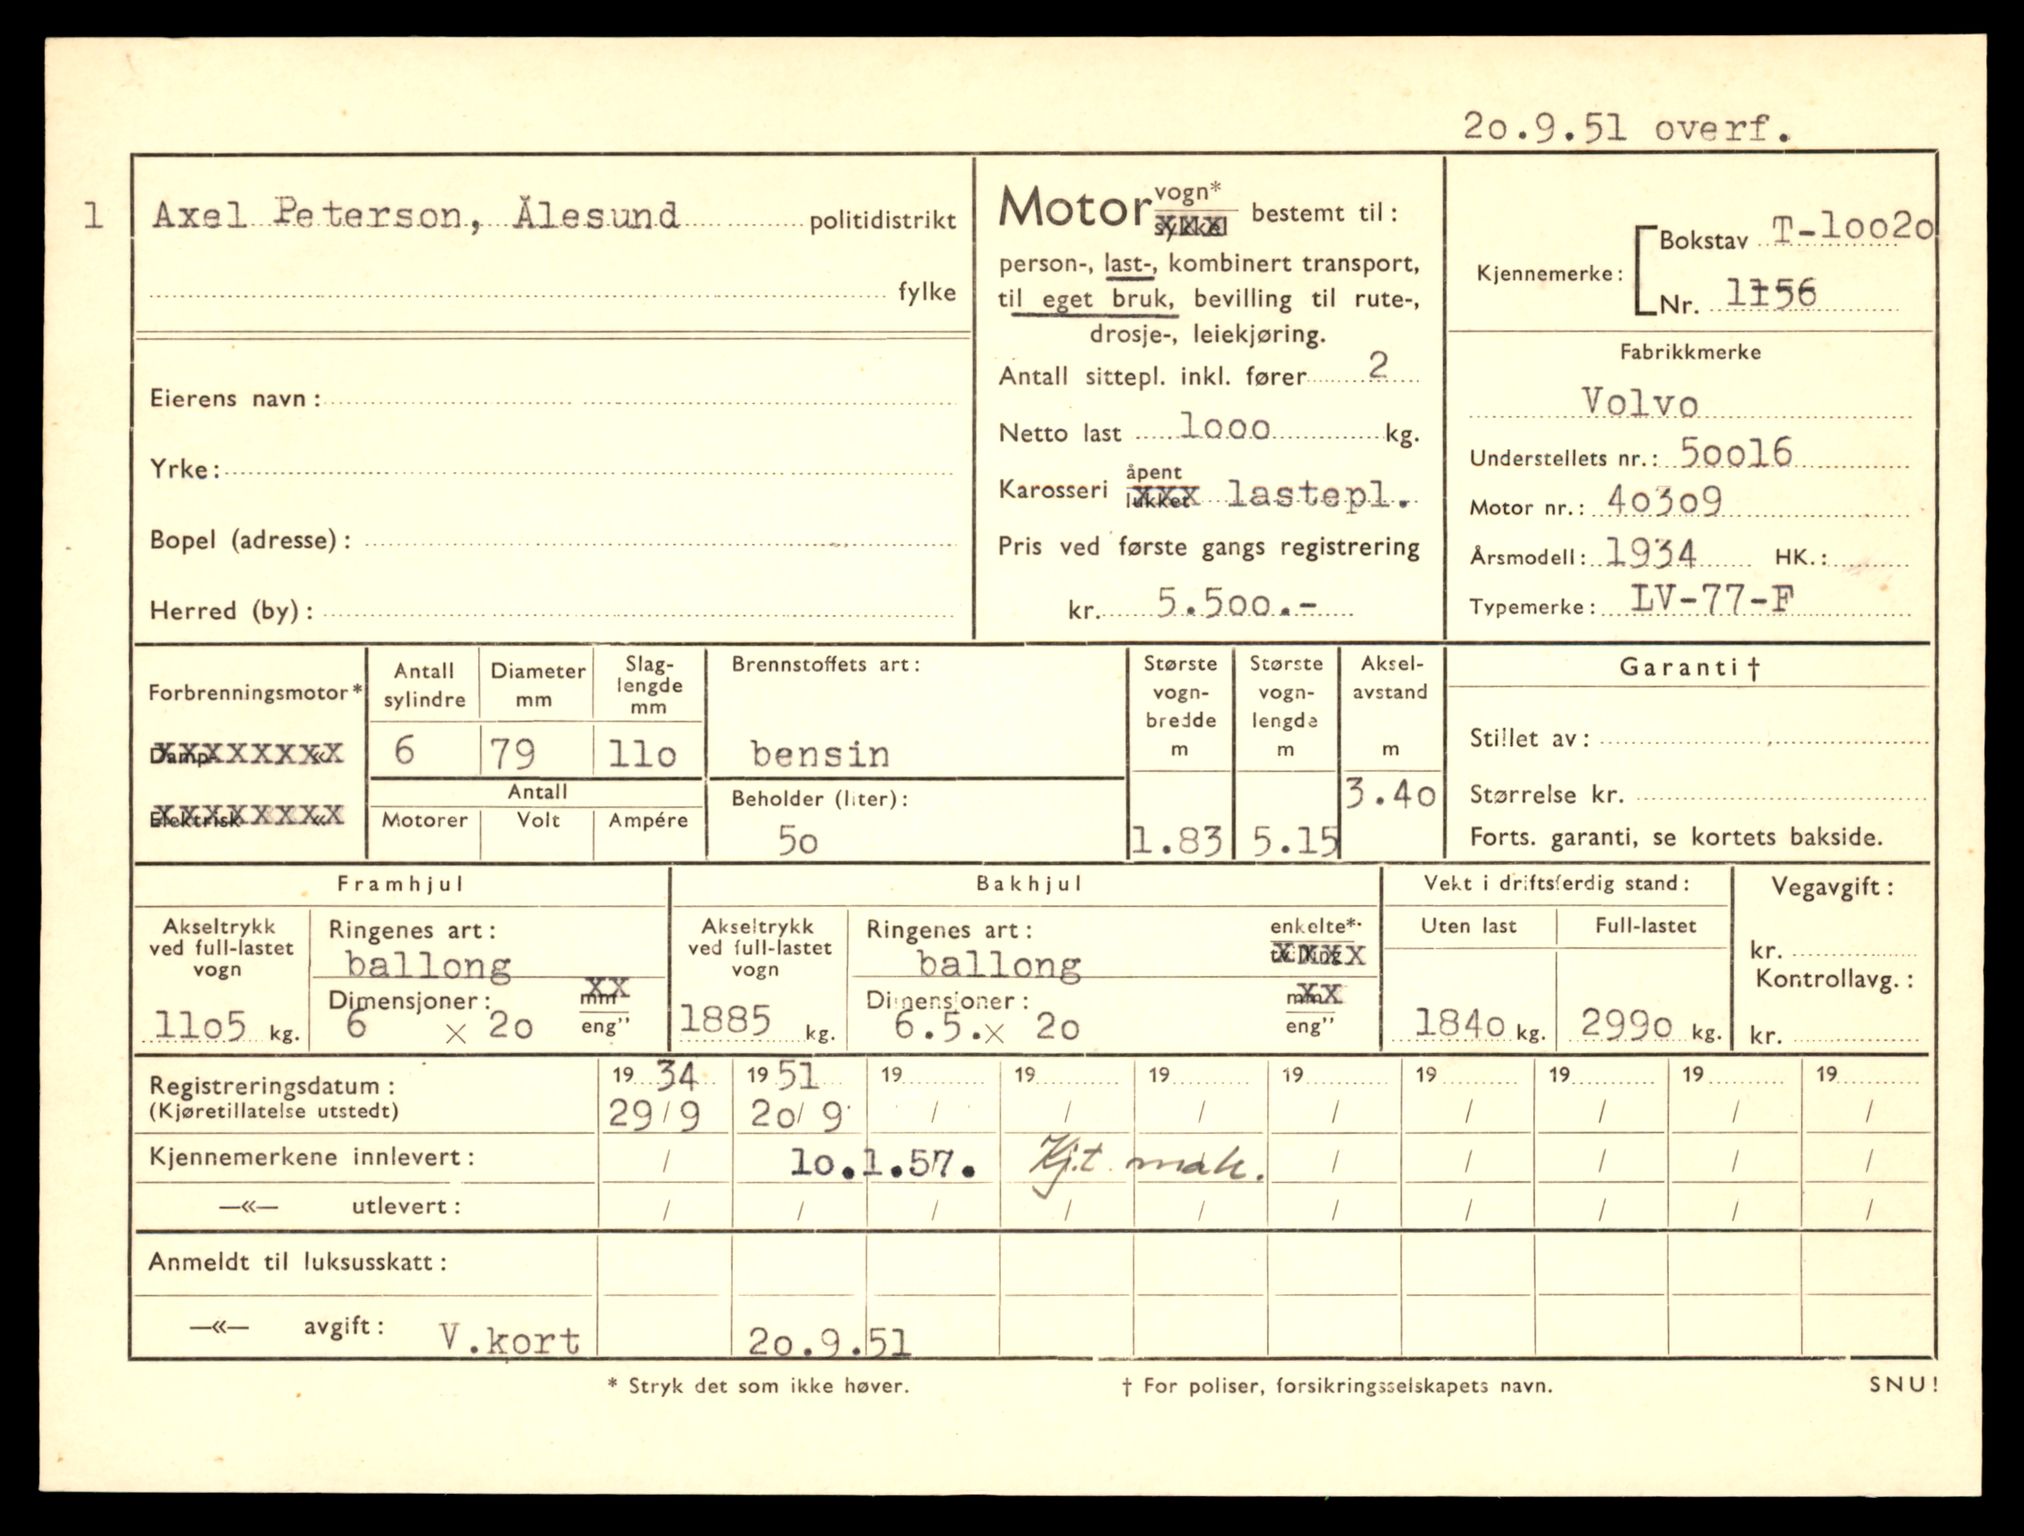 20.9.51 overf.
1 Axel Peterson, Ålesund politidistrikt
fylke
Eierens navn:
Yrke:
Bopel (adresse):
Herred (by):
Motor vogn* sykkel bestemt til:
person-, last-, kombinert transport,
til eget bruk, bevilling til rute-,
drosje-, leiekjøring.
Antall sittepl. inkl. fører 2
Netto last 1000 kg.
Karosseri åpent lukket lastepl.
Pris ved første gangs registrering
kr. 5.500.-
Kjennemerke: Bokstav T-10020
Nr. 1156
Fabrikkmerke
Volvo
Understellets nr.: 50016
Motor nr.: 40309
Årsmodell: 1934 HK.:
Typemerke: LV-77-F
Forbrenningsmotor*
Damp «
Elektrisk «
Antall sylindre
6
Diameter mm
79
Slaglengde mm
110
Antall
Motorer Volt Ampére
Brennstoffets art:
bensin
Beholder (liter):
50
Største vogn-bredde m
1.83
Største vogn-lengde m
5.15
Aksel-avstand m
3.40
Garanti †
Stillet av:
Størrelse kr.
Forts. garanti, se kortets bakside.
Framhjul
Akseltrykk ved full-lastet vogn
1105 kg.
Ringenes art:
ballong
Dimensjoner: mm
6 x 20 eng"
Bakhjul
Akseltrykk ved full-lastet vogn
1885 kg.
Ringenes art: enkelte* tvilling
ballong
Dimensjoner: mm
6.5. x 20 eng"
Vekt i driftsferdig stand:
Uten last Full-lastet
1840 kg. 2990 kg.
Vegavgift:
kr.
Kontrollavg.:
kr.
Registreringsdatum: 19 34 19 51 19 19 19 19 19 19 19 19
(Kjøretillatelse utstedt) 29/9 20/9 / / / / / / / /
Kjennemerkene innlevert: / 10.1.57. Kj.t. mak. / / / / /
—«— utlevert: / / / / / / / / / /
Anmeldt til luksusskatt:
—«— avgift: V.kort 20.9.51
* Stryk det som ikke høver. † For poliser, forsikringsselskapets navn. SNU!